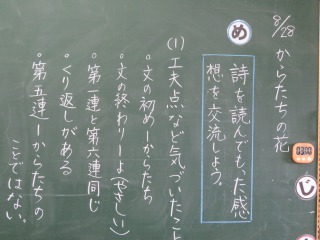 8/28
からたちの花
め
詩を読んでもった感
想を交流しよう。
(1)工夫点など気づいたこと
・文の初めーからたち
・文の終わりーよ(やさしい)
・第一連と第六連同じ
・くり返しがある
・第五連ーからたちの
ことではない。
じ